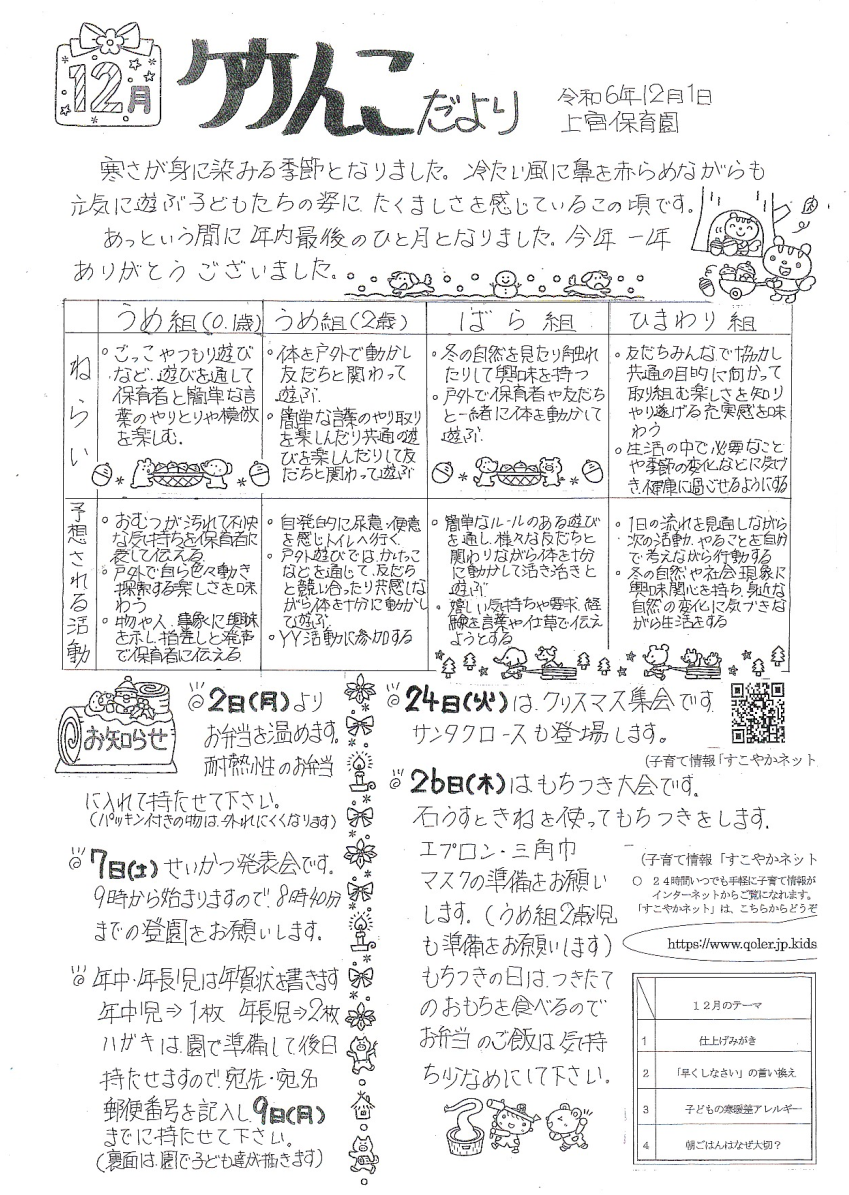 12月
竹んこだより
令和6年12月1日
上宮保育園
寒さが身に染みる季節となりました。冷たい風に鼻を赤らめながらも
元気に遊ぶ子どもたちの姿に、たくましさを感じているこの頃です。
あっという間に年内最後のひと月となりました。今年一年
ありがとうございました。
うめ組(0.1歳)
うめ組(2歳)
ばら組
ひまわり組
ねらい
○ごっこやつもり遊び
など、遊びを通して
保育者と簡単な言
葉のやりとりや模倣
を楽しむ。
○体を戸外で動かし
友だちと関わって
遊ぶ
○簡単な言葉のやり取り
を楽しんだり共通の遊
びを楽しんだりして友
だちと関わって遊ぶ
○冬の自然を見たり触れ
たりして興味を持つ
○戸外で保育者や友だち
と一緒に体を動かして
遊ぶ
○友だちみんなで協力し
共通の目的に向かって
取り組む楽しさを知り
やり遂げる充実感を味
わう
○生活の中で必要なこと
や季節の変化などに気づ
き、健康に過ごせるようにする
予想される活動
○おむつが汚れて不快
な気持ちを保育者に
表して伝える
○戸外で自ら色々動き
探索する楽しさを味
わう
○物や人、事象に興味
を示し指差しと発声
で保育者に伝える
○自発的に尿意・便意
を感じトイレへ行く
○戸外遊びでは、かけっこ
などを通じて、友だち
と競い合ったり共感しな
がら体を十分に動かし
て遊ぶ。
○YY活動に参加する
○簡単なルールのある遊び
を通し、様々な友だちと
関わりながら体を十分
に動かして活き活きと
遊ぶ
○嬉しい気持ちや要求、経
験を言葉や仕草で伝え
ようとする
○1日の流れを見通しながら
次の活動、やることを自分
で考えながら行動する
○冬の自然や社会現象に
興味関心を持ち、身近な
自然の変化に気づきな
がら生活をする
お知らせ
◎2日(月)より
お弁当を温めます。
耐熱性のお弁当
に入れて持たせて下さい。
(パッキン付きの物は、外れにくくなります)
◎7日(土)せいかつ発表会です。
9時から始まりますので8時40分
までの登園をお願いします。
◎年中・年長児は年賀状を書きます
年中児⇒1枚 年長児⇒2枚
ハガキは、園で準備して後日
持たせますので、宛先・宛名
郵便番号を記入し、9日(月)
までに持たせて下さい。
(裏面は、園で子ども達が描きます)
◎24日(火)は、クリスマス集会です。
サンタクロースも登場します。
(子育て情報「すこやかネット
◎26日(木)はもちつき大会です。
石うすときねを使ってもちつきをします。
エプロン・三角巾
マスクの準備をお願い
します。(うめ組2歳児
も準備をお願いします)
もちつきの日は、つきたて
のおもちを食べるので
お弁当のご飯は、気持
ち少なめにして下さい。
(子育て情報「すこやかネット
○ 24時間いつでも手軽に子育て情報が
インターネットからご覧になれます。
「すこやかネット」は、こちらからどうぞ
https://www.qoler.jp.kids
12月のテーマ
1 仕上げみがき
2 「早くしなさい」の言い換え
3 子どもの寒暖差アレルギー
4 朝ごはんはなぜ大切？